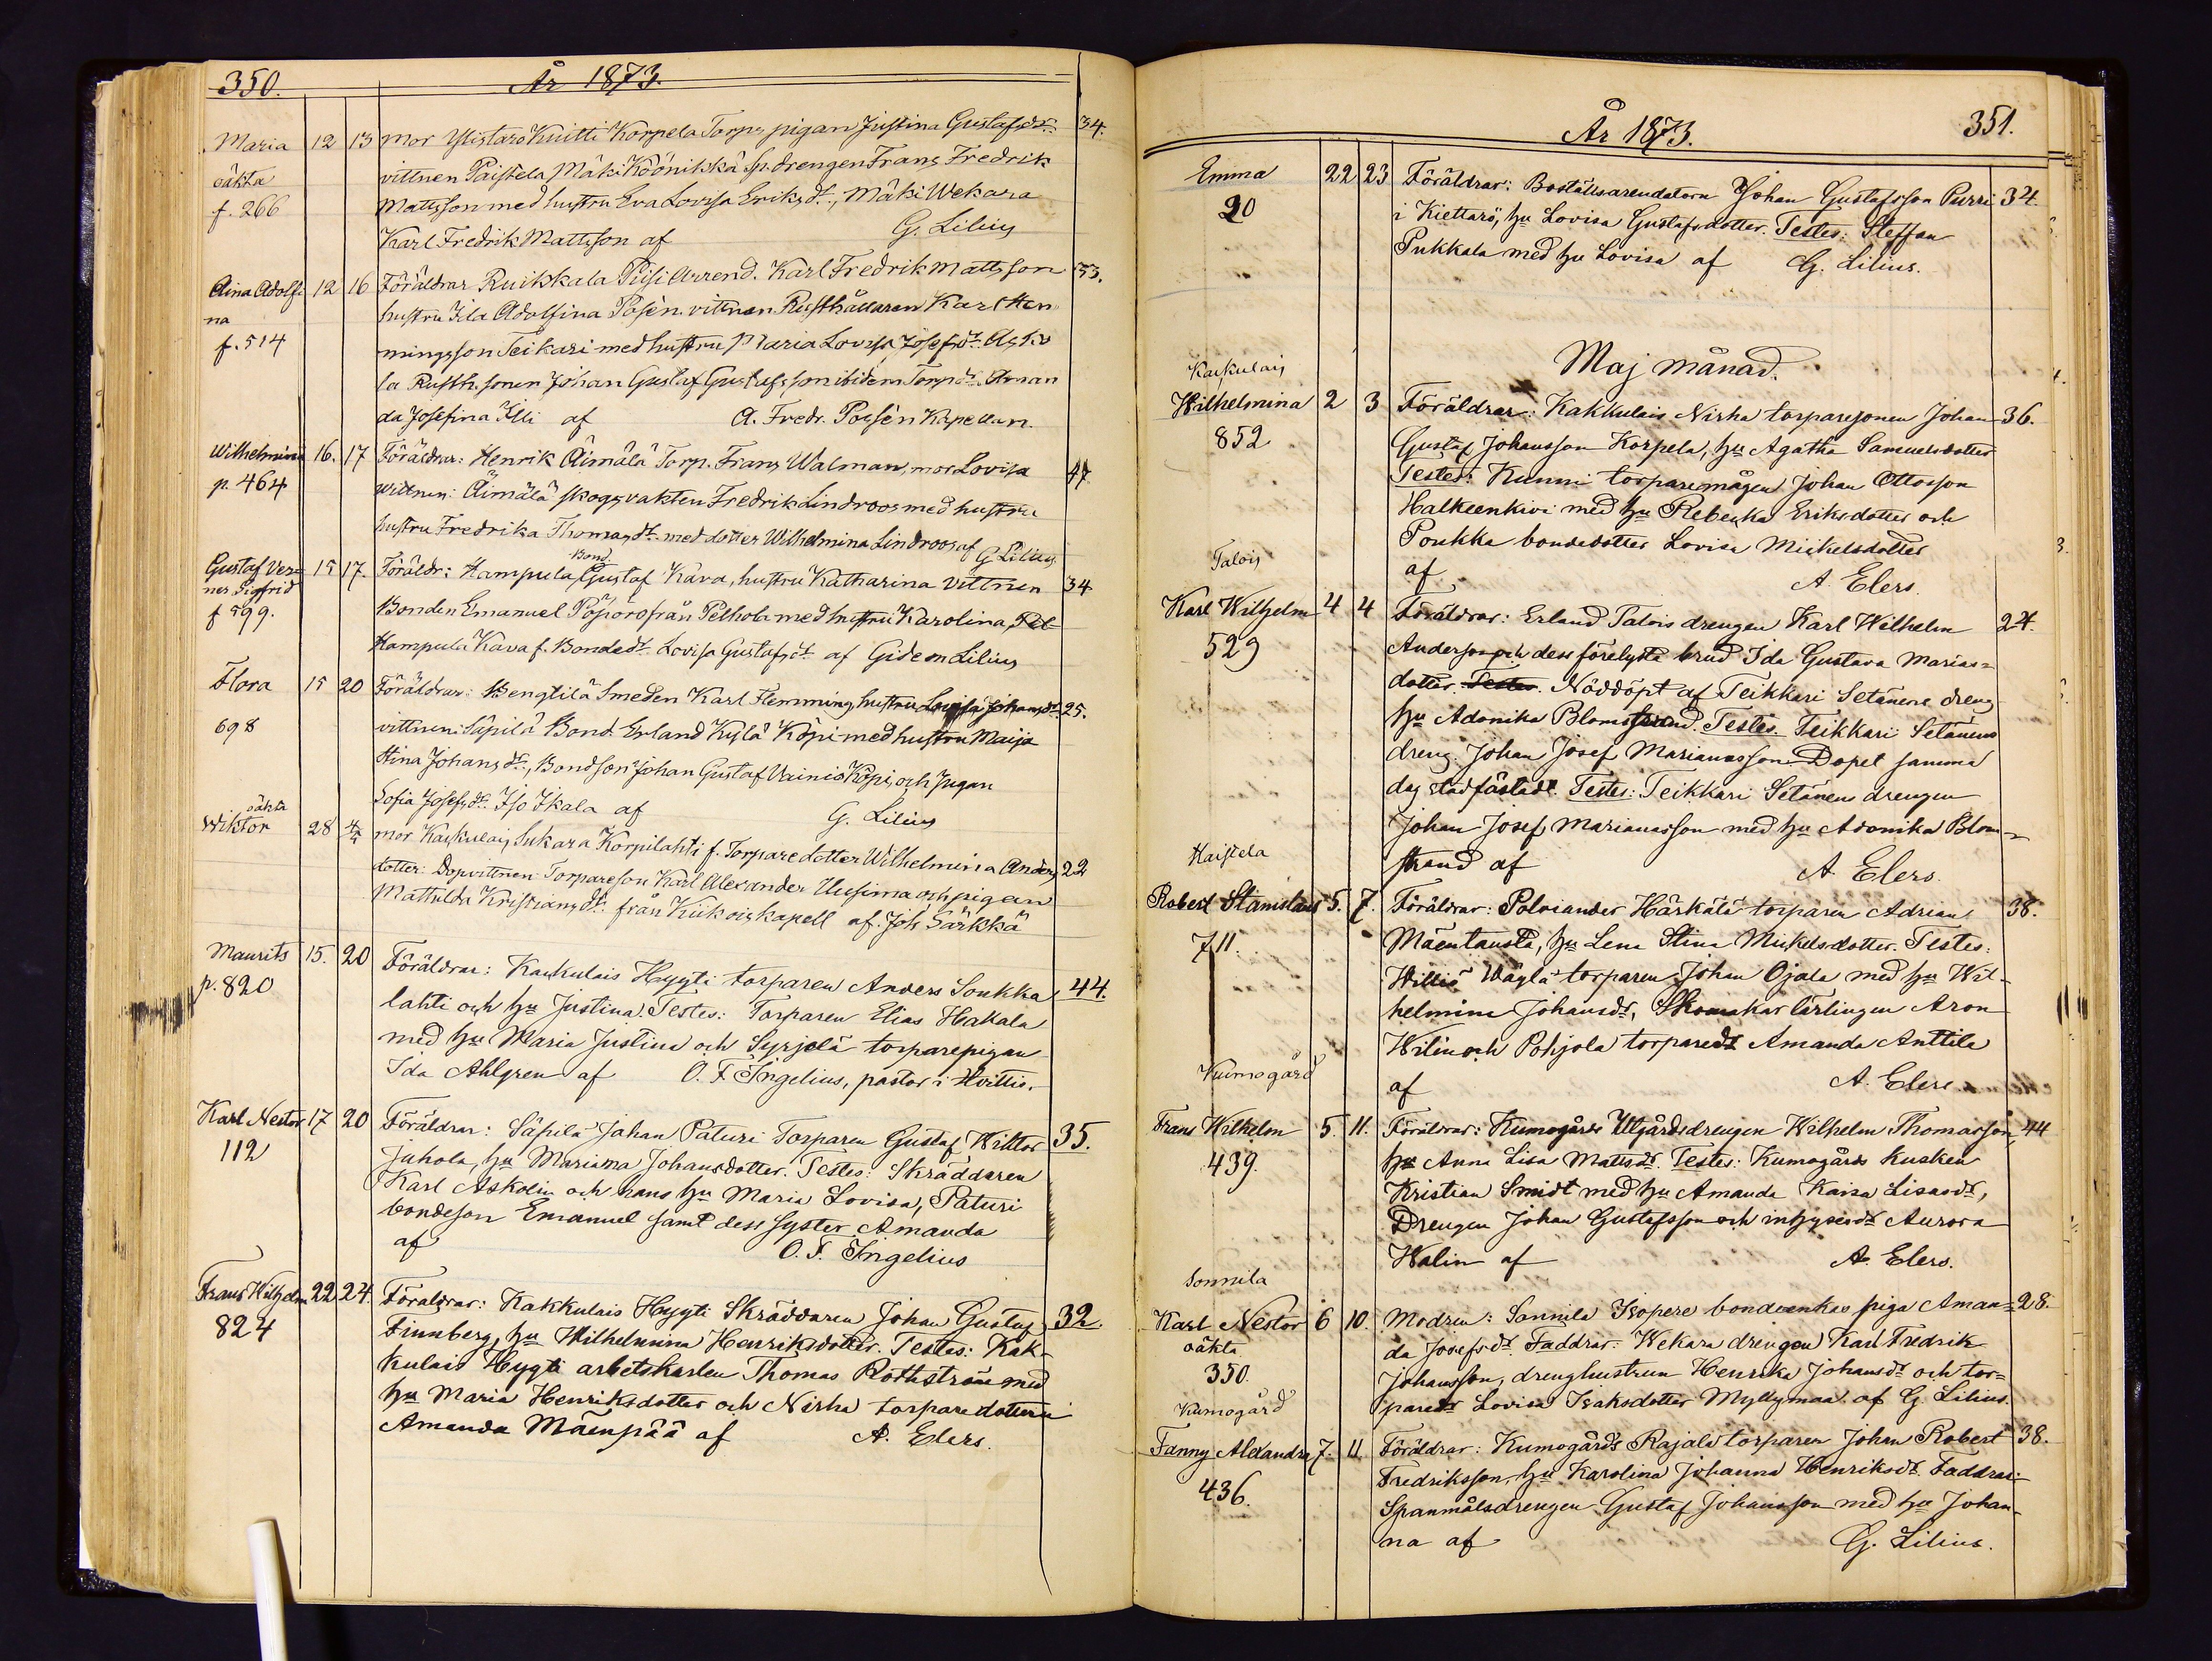 350.
År 1873.
Maria 12 13 Mor Ylistaro Kuitti Korpela Torp. pigan Justina Gustafsdr 34.
oäkta vittnen Paistela Mäki Köönikkä Sp. drengen Frans Fredrik
f. 266 Mattsson med hustru Eva Lovisa Eriksdr, Mäki Wekara
Karl Fredrik Mattsson af G. Lilius
Aina Adolfi 12 16 Föräldrar Ruikkala Piisi Arrend. Karl Fredrik Mattsson 33.
na hustru Ida Adolfina Posén. vittnen Rusthållaren Karl Hen
f. 514 ningsson Teikari med hustru Maria Lovisa Josefsdr. Asko
la Rusth. sonen Johan Gustaf Gustafsson ibidem Torpdr. Aman
da Josefina Illi af A. Fredr. Posén Kapellan.
Wilhelmina 16. 17 Föräldrar: Henrik Äimälä Torp. Frans Walman, mor Lovisa 47
p. 464 Wittnen: Äimälä skogsvakten Fredrik Lindroos med hustru
hustru Fredrika Thomasdr. med dotter Wilhelmina Lindroos af G Lilius
Bond.
Gustaf Ver= 15 17 Föräldr: Hampula Gustaf Käva, hustru Katharina Vittnen 34
ner Sigfrid Bonden Emanuel Pöporo från Pelhola med hustru Karolina, Pel
f 599. Hampula Kava f. Bondedr. Lovisa Gustafsdr af Gideon Lilius
Flora 15 20 Föräldrar: Bengtilä Smeden Karl Flemming, hustru Lovisa Johansdr 25.
698 vittnen: Säpilä Bond. Erland Kylä Köpi med hustru Maija
Stina Johansdr., Bondson Johan Gustaf Vainio Köpi, och Jungan
Sofia Josefsdr. Iso Ikala af G. Lilius
oäkta
Wiktor 28 4/5 mor Kakkulais Sukara Korpilahti f. Torparedotter Wilhelmina Anders 22
dotter: Dopvittnen Torpareson Karl Alexander Uusima och pigan
Mathilda Kristiansdr. från Kiikois kapell af. Joh. Särkkä
Maurits 15. 20 Föräldrar: Kakkulais Hyyti torparen Anders Soukka 44.
p. 820 lahti och hu Justina. Testes: Torparen Elias Hakala
med hu Maria Justina och Syrjälä torparepigan
Ida Ahlgren af O. F. Ingelius, pastor i Hvittis.
Karl Nestor 17 20 Föräldrar: Säpilä Johan Paturi Torparen Gustaf Wiktor 35.
112 Juhola, hu Mariana Johansdotter. Testes: Skräddaren
Karl Askolin och hans hu Maria Lovisa, Paturi
bondeson Emanuel samt dess syster Amanda
af O. F. Ingelius
Frans Wilhelm 22 24. Föräldrar: Kakkulais Hyyti Skräddaren Johan Gustaf 32.
824 Finnberg, hu Wilhelmina Henriksdotter. Testes: Kak-
kulais Hyyti arbetskarlen Thomas Rothström med
hu Maria Henriksdotter och Nirha torparedottern
Amanda Mäenpää af A. Elers.
År 1873. 351.
Emma 22 23 Föräldrar: Boställsarendatorn Johan Gustafsson Purri 34.
20 i Kiettarö, hu Lovisa Gustafsdotter. Testes: Steffan
Pukkala med hu Lovisa af G. Lilius.
Maj månad.
Kakkulais
Wilhelmina 2 3 Föräldrar: Kakkulais Nirha torparesonen Johan 36.
852 Gustaf Johansson Korpela, hu Agatha Samuelsdotter
Testes: Kunni torparemågen Johan Ottosson
Halkeenkivi med hu Rebecka Eriksdotter och
Poukka bondedotter Lovisa Mickelsdotter
af A. Elers.
Talois
Karl Wilhelm 4 4 Föräldrar: Erland Talois drengen Karl Wilhelm 24.
529 Anderson och dess förelysta brud Ida Gustava Marias=
dotter. Testes. Nöddöpt af Teikkari Setänens dreng
hu Adonika Blomstrand. Testes. Teikkari Setänens
dreng. Johan Josef Marianasson. Dopet samma
dag stadfästadt. Testes: Teikkari Setänens drengen
Johan Josef Marianasson med hu Adonika Blom=
strand af A. Elers.
Haistela
Robert Stanislaus 5. 7. Föräldrar: Polviander Härkälä torparen Adrian 38.
711. Mäentausta, hu Lena Stina Mickelsdotter. Testes:
Willio Wäylä torparen Johan Ojala med hu Wil-
helmina Johansdr, Skomakarlärlingen Aron
Wilin och Pohjola torparedr Amanda Anttila
af A. Elers
Kumogård
Frans Wilhelm 5. 11. Föräldrar: Kumogårds Utgårdsdrengen Wilhelm Thomasson, 44
439. hu Anna Lisa Mattsdr. Testes: Kumogårds kusken
Kristian Smidt med hu Amanda Kaisa Lisasdr,
Drengen Johan Gustafsson och inhysesdr Aurora
Walin af A. Elers.
Sonnila
Karl Nestor 6 10. Modren: Sonnila Isopere bondeenkas piga Aman= 28.
oäkta da Josefsdr. Faddrar: Wekara drengen Karl Fredrik
350. Johansson, drenghustrun Henrika Johansdr och tor=
paredr Lovisa Isaksdotter Myllymaa af G. Lilius.
Kumogård
Fanny Alexandra 7. 11. Föräldrar: Kumogårds Rajala torparen Johan Robert 38.
436. Fredriksson, hu Karolina Johanna Henriksdr. Faddrar:
Spanmålsdrengen Gustaf Johansson med hu Johan-
na af G. Lilius.